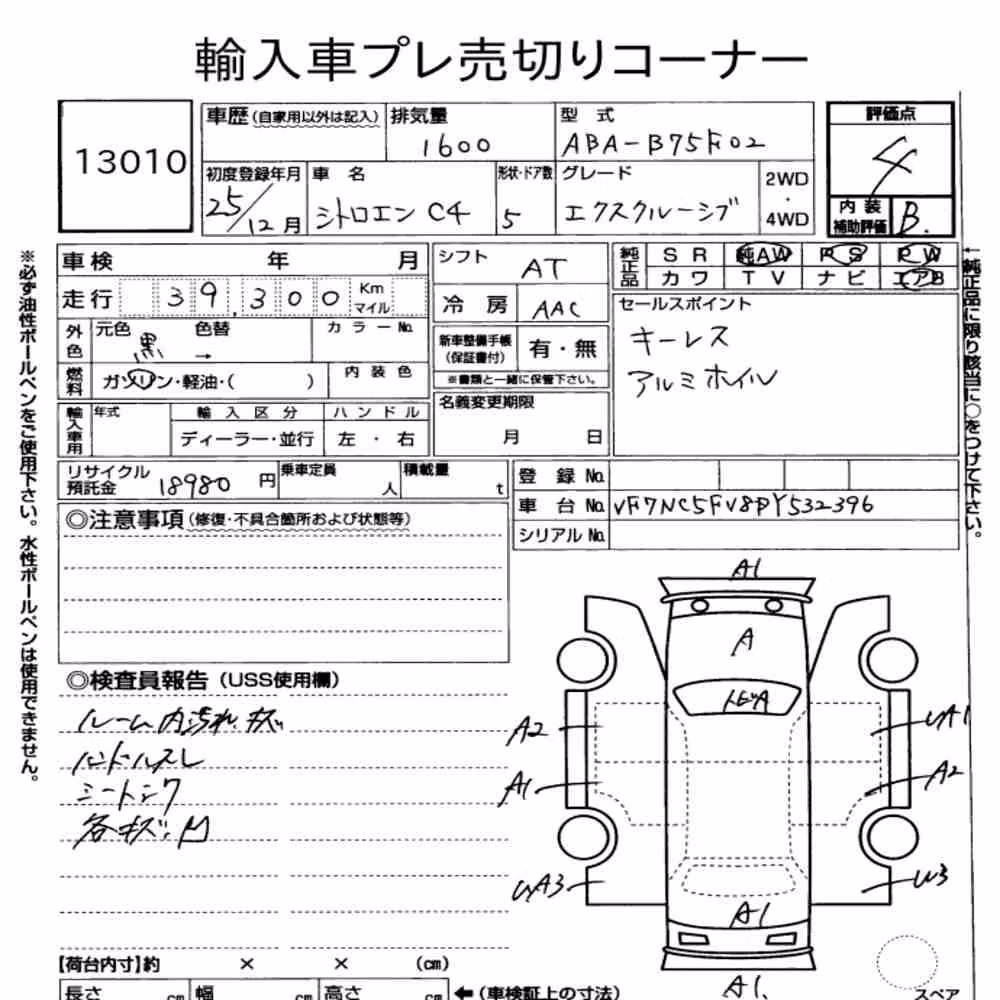 輸入車プレ売切りコーナー
13010
車歴 (自家用以外は記入)
排気量
1600
型 式
ABA-B75F02
評価点
4
初度登録年月
25/12月
車 名
シトロエン C4
形状・ドア数
5
グレード
エクスクルーシブ
2WD
・
4WD
内 装
補助評価
B.
車検 年 月
走行 39,300 Km
マイル
外色
元色 色替
黒 →
カラーNo.
燃料
ガソリン・軽油・( )
内 装 色
輸入車用
年式
輸 入 区 分
ディーラー・並行
ハ ン ド ル
左 ・ 右
シフト
AT
冷 房
AAC
新車整備手帳
(保証書付)
有・無
※書類と一緒に保管下さい。
名義変更期限
月 日
純正品
S R 純AW P S P W
カ ワ T V ナ ビ エアB
セールスポイント
キーレス
アルミホイル
リサイクル
預託金
18980 円
乗車定員
人
積載量
t
登 録 No.
車 台 No. VF7NC5FV8PY532396
シリアル No.
◎注意事項 (修復・不具合箇所および状態等)
◎検査員報告 (USS使用欄)
ルーム内汚れ キズ
ハンドルスレ
シートシワ
各キズ M
A1
A
トビA
A2
A1
UA3
UA1
A2
U3
A1
A1.
【荷台内寸】約 × × (cm)
長さ cm 幅 cm 高さ cm
←(車検証上の寸法)
スペア
※必ず油性ボールペンをご使用下さい。水性ボールペンは使用できません。
←純正品に限り該当に○をつけて下さい。